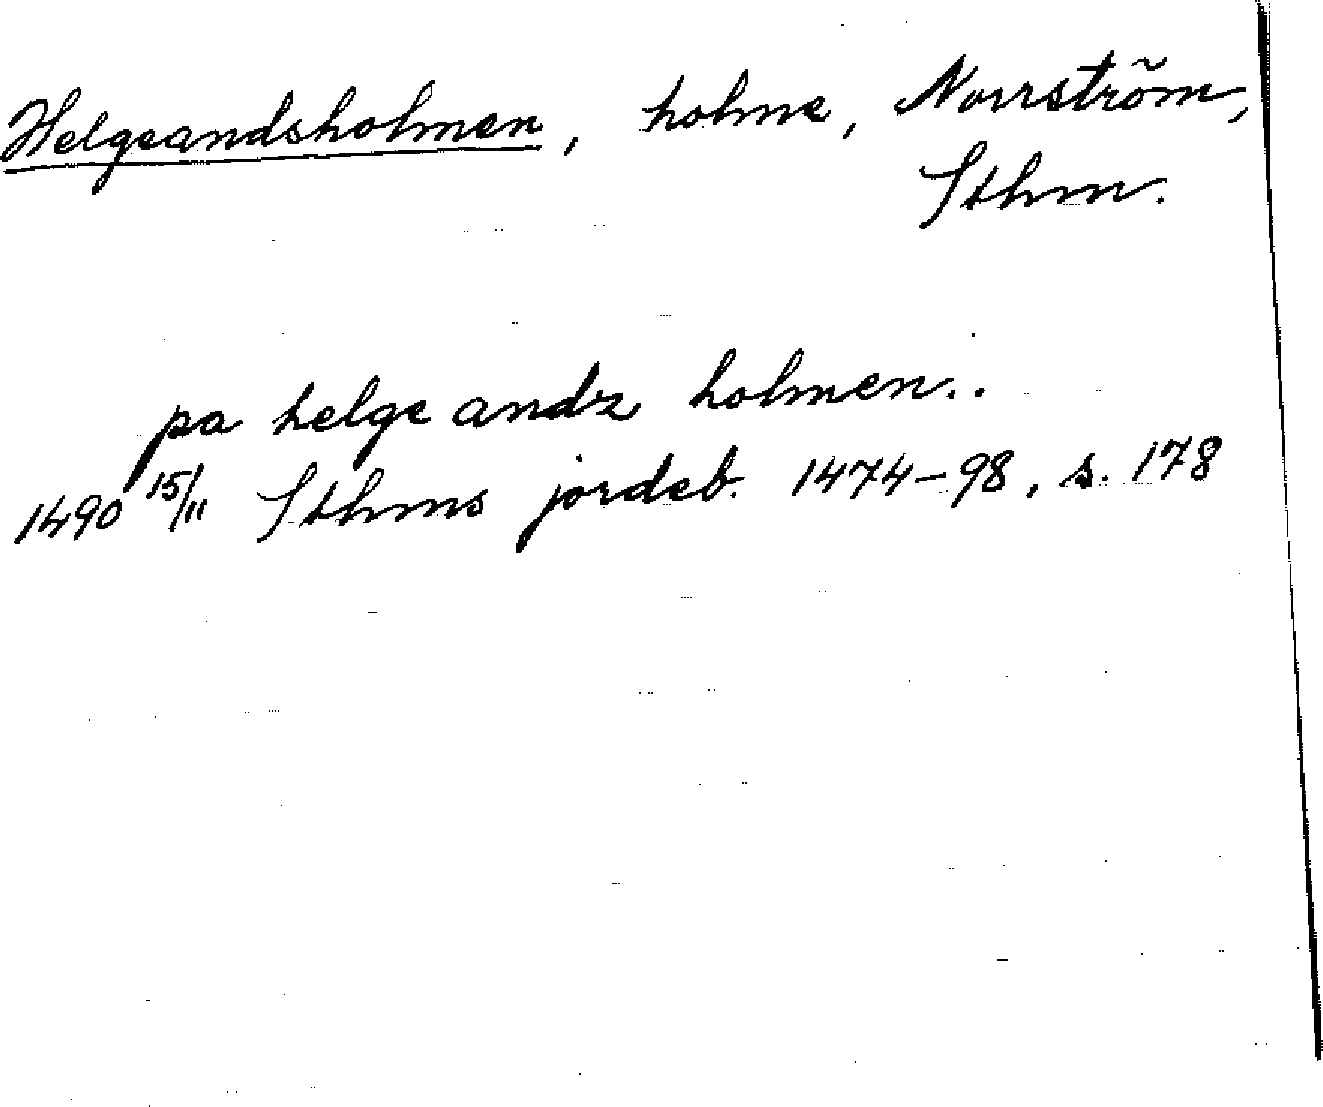 Helgeandsholmen, holme, Norrström,
Sthm.
pa helge andz holmen..
1490 15/11 Sthms jordeb. 1474-98, s. 178